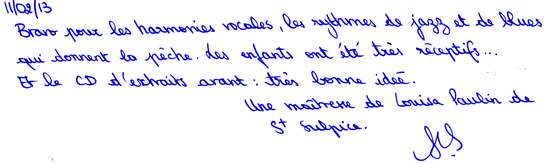 11/02/13
Bravo pour les harmonies vocales, les rythmes de jazz et de blues
qui donnent la pêche. Les enfants ont été très réceptifs...
Et le CD d'extraits avant : très bonne idée.
Une maîtresse de Louisa Paulin de
St Sulpice.